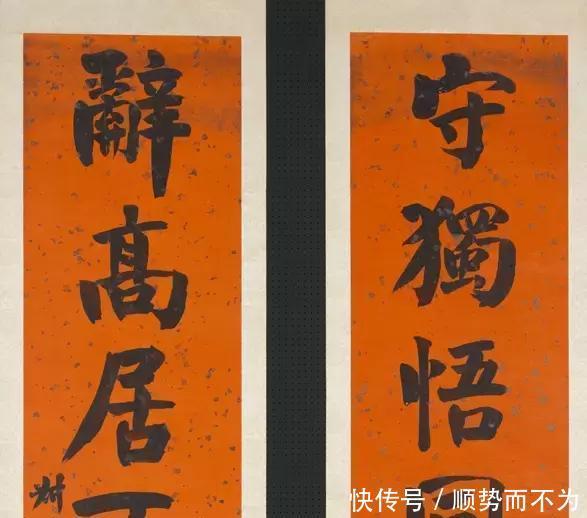 守獨悟
辭高居
快传号 / 顺势而不为